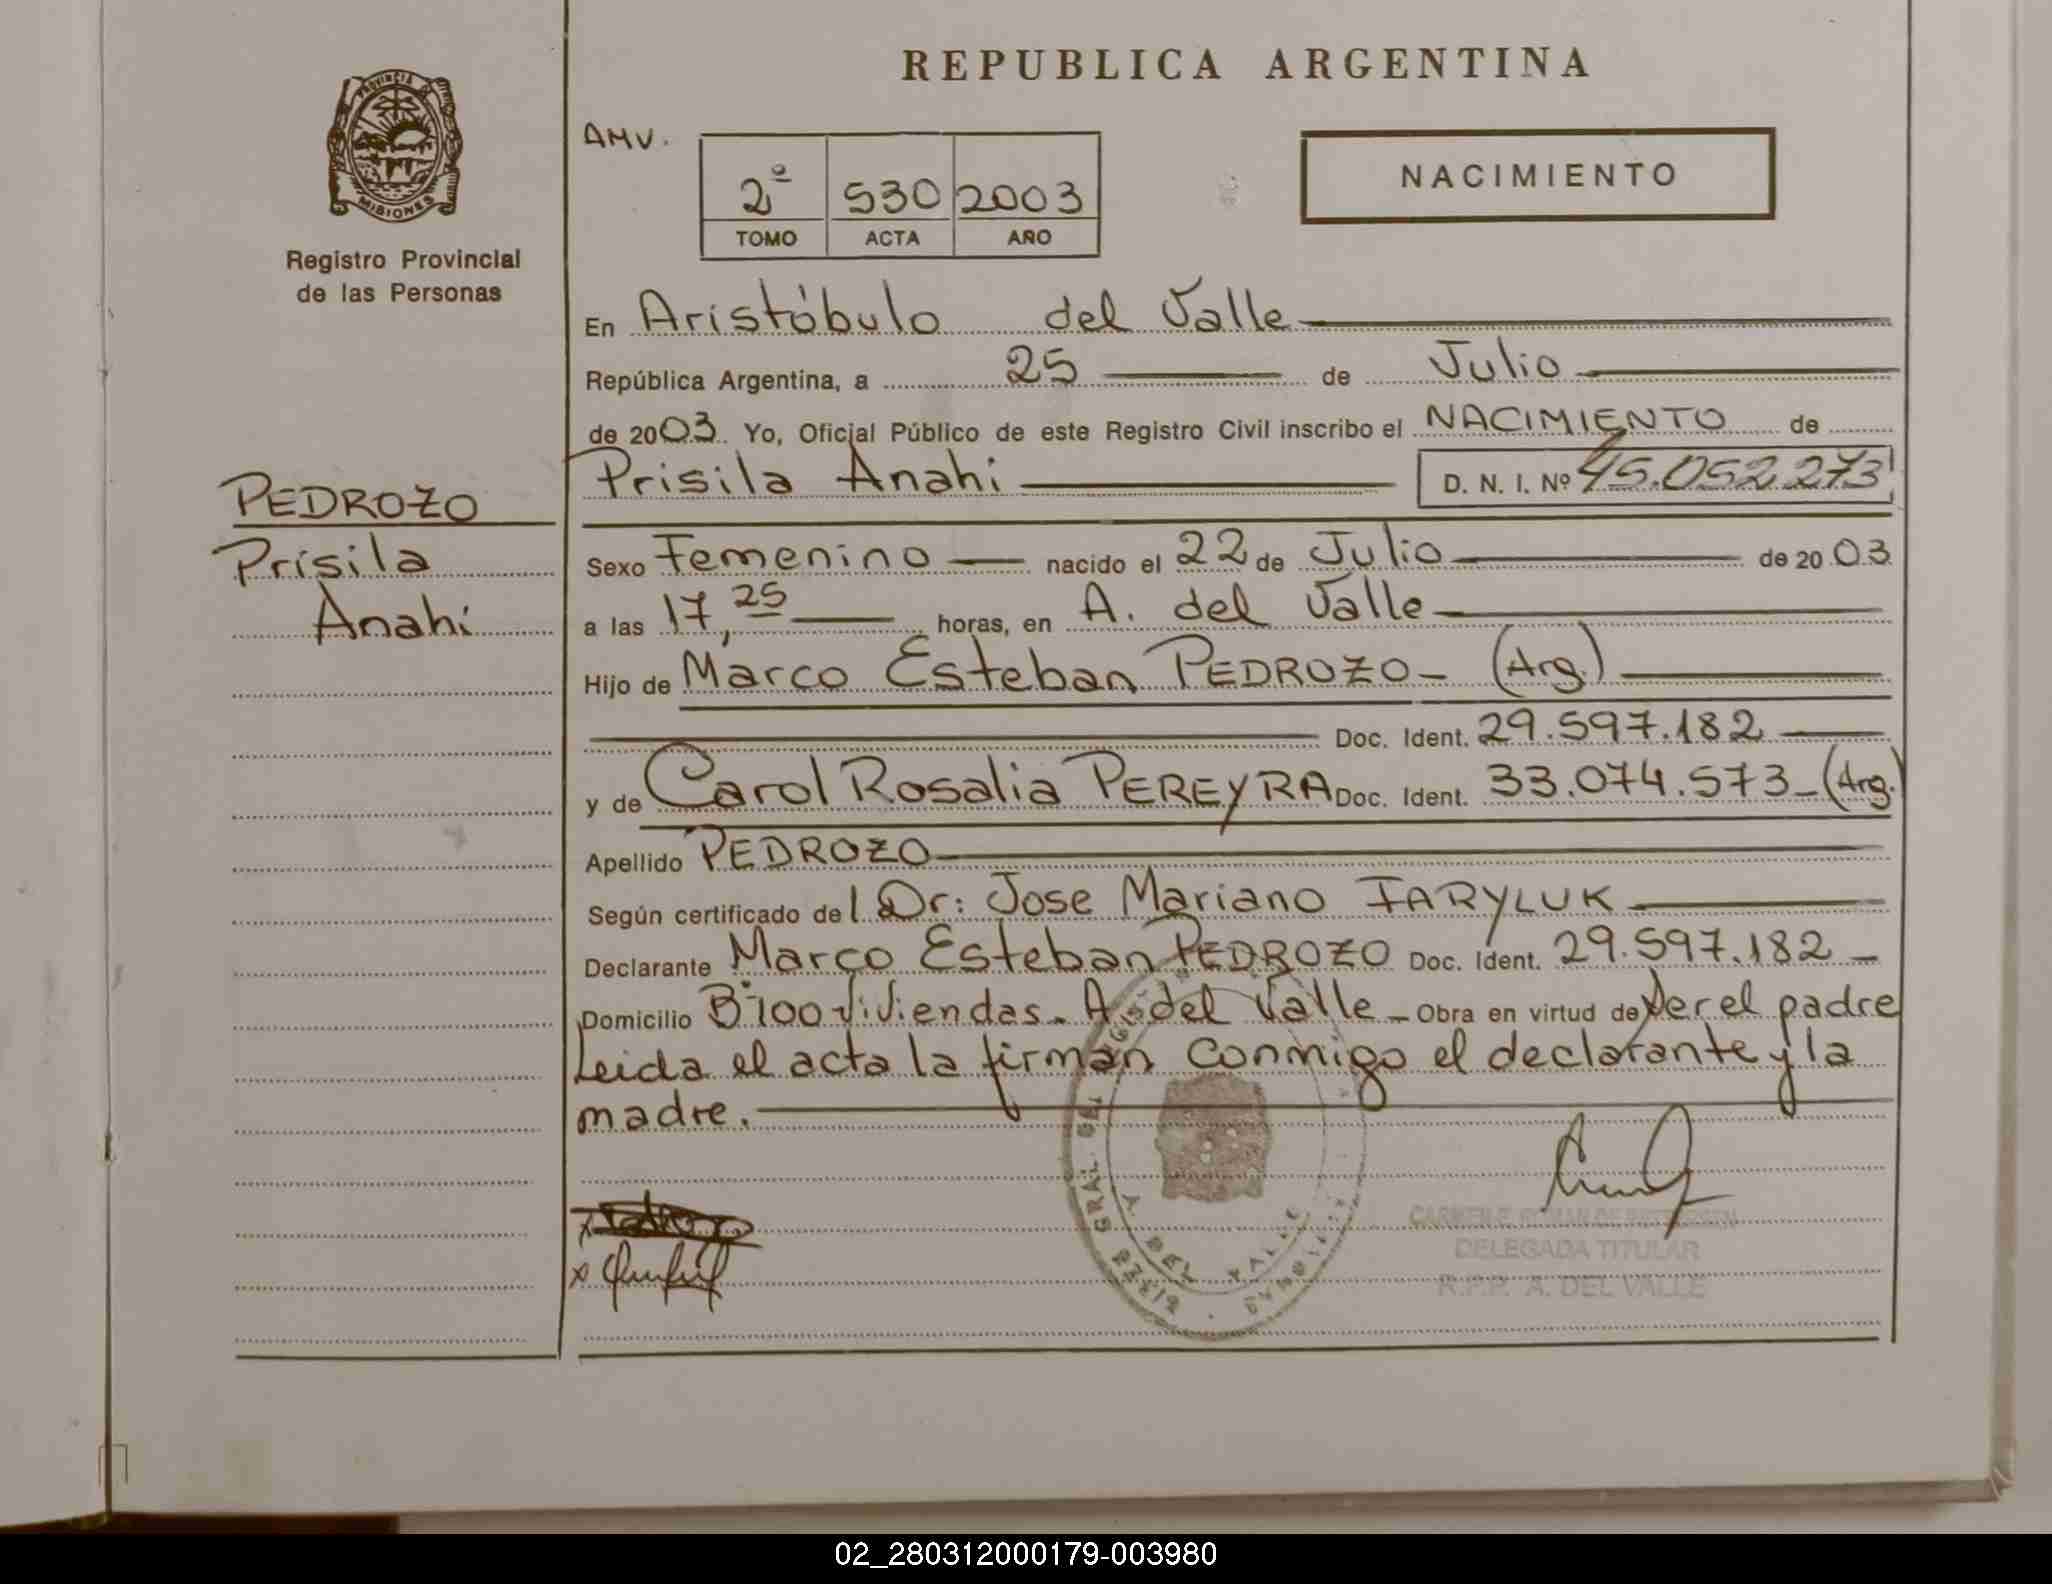 REPUBLICA ARGENTINA
PROVINCIA DE
MISIONES
Registro Provincial
de las Personas
AMV.
2º 530 2003
TOMO ACTA AÑO
NACIMIENTO
En Aristóbulo del Valle
República Argentina, a 25 de Julio
de 2003. Yo, Oficial Público de este Registro Civil inscribo el NACIMIENTO de
Prisila Anahi D. N. I. Nº 45.052.273
PEDROZO
Prisila
Anahi
Sexo Femenino nacido el 22 de Julio de 2003
a las 17,25 horas, en A. del Valle
Hijo de Marco Esteban PEDROZO - (Arg.)
Doc. Ident. 29.597.182
y de Carol Rosalia PEREYRA Doc. Ident. 33.074.573 - (Arg.)
Apellido PEDROZO
Según certificado del Dr: Jose Mariano IARYLUK
Declarante Marco Esteban PEDROZO Doc. Ident. 29.597.182 -
Domicilio Bº 100 Viviendas - A. del Valle - Obra en virtud de ser el padre
Leida el acta la firman conmigo el declarante y la
madre.
A. DEL VALLE
DELEGADA TITULAR
R.P.P. A. DEL VALLE
02_280312000179-003980